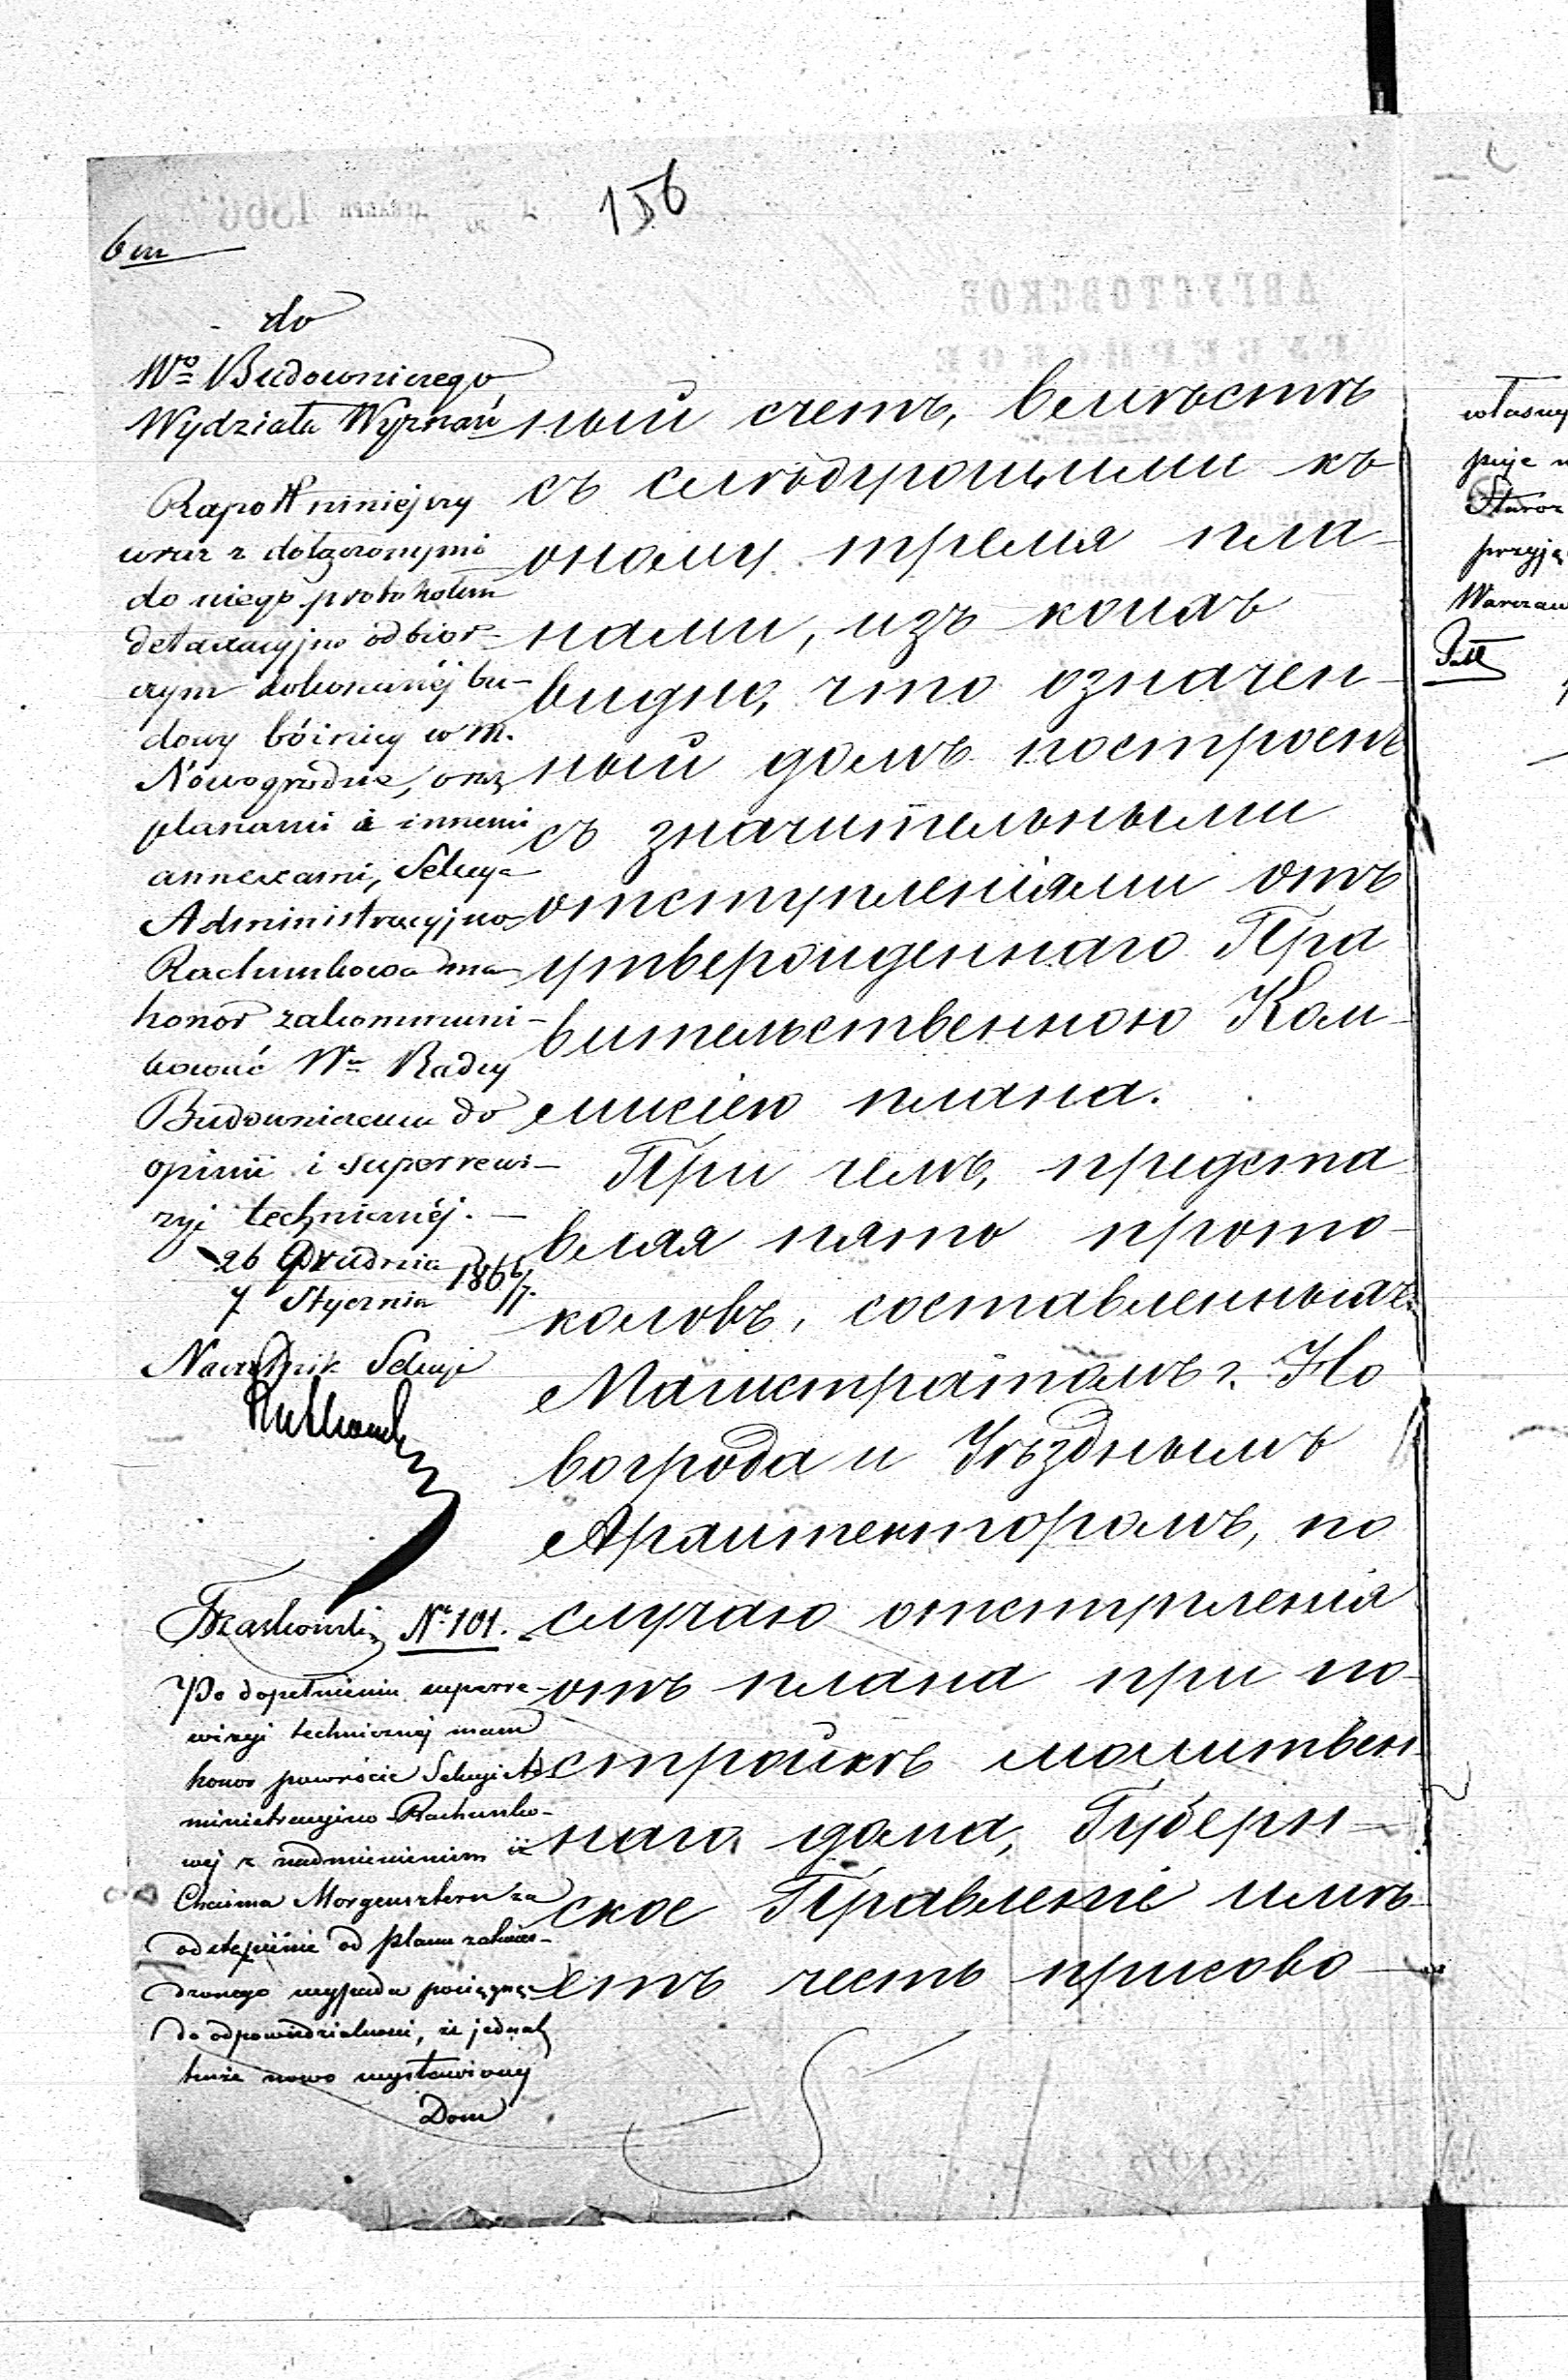 156
do
Wo Budowniczego
Wydziału Wyznań
Raport niniejszy
wraz z dołączonymi
do niego protokołem
detaxacyjno odbior-
czym dokonanéj bu-
dowy bóżnicy w m.
Nowogrodzie, oraz
planami i innemi
annexami, Sekcya
Administracyjno
Rachunkowa ma
honor zakommuni-
kować Wu Radcy
Budowniczemu do
opinii i superrewi-
zyi technicznéj. —
26 Grudnia
7 Stycznia 1866/7.
Naczelnik Sekcyi
№ 101.
Po dopełnieniu superre-
wizyi technicznej mam
honor powrócić Sekcyi Ad-
ministracyjno-Rachunko-
wej z nadmienieniem iż
Chaima Morgensztern za
odstąpienie od planu zatwier-
dzonego wypada pociągnąć
do odpowiedzialności, że jednak
tenże nowo wystawiony
Dom
ный счетъ, вмѣстѣ
съ слѣдующими къ
оному тремя пла-
нами, изъ коихъ
видно, что означен-
ный домъ построенъ
съ значительными
отступленіями отъ
утвержденнаго Пра
вительственною Ком-
мисіею плана.
При чемъ, предста
вляя пять прото-
коловъ, составленныхъ
Магистратомъ г. Но
вогрода и Уѣзднымъ
Архитекторомъ, по
случаю отступленія
отъ плана при по-
стройкѣ молитвен
наго дома, Губерн-
ское Правленіе имѣ-
етъ честь присово
własny
puje
przyję
Warszaw